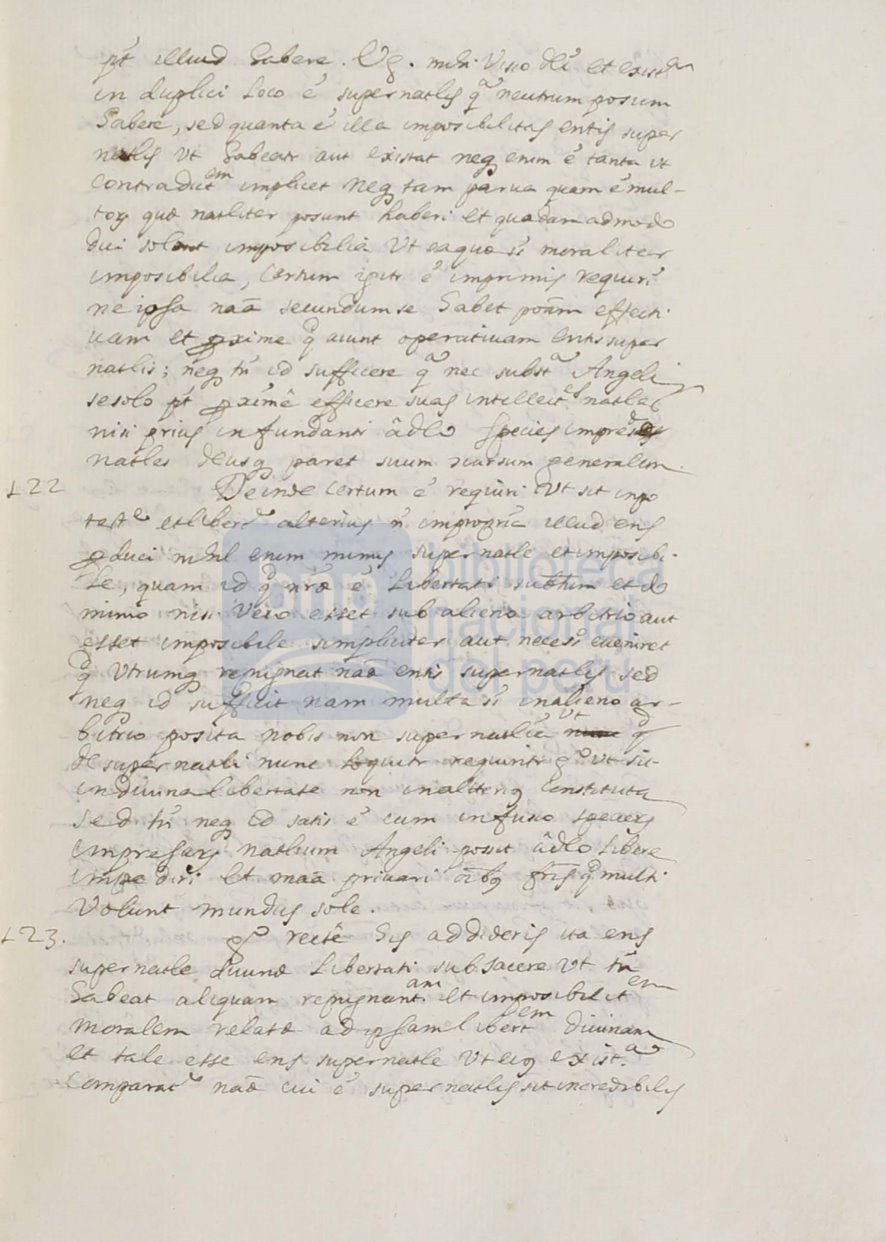 pt̃ illud habere. Vg. mihi Visio dei et exist.
in duplici loco ẽ supernatlis qª neutrum posum
habere, sed quanta ẽ illa imposibilitas entis super
natlis vt habeatr aut existat neq enim ẽ tanta ut
contradict.em implicet neq tam parua quam ẽ mul-
tor, quæ natliter posunt haberi et quadam ad modo
dici solent imposibilia Vt ea quæ st̃ moraliter
imposibilia, certum igitr ẽ imprimis requiri
ne ipsa naã secundum se habet poãm effecti
uam et proxime q̃ aiunt operatiuam entis super
natlis; neq tñ id sufficere qª nec substª Angeli
se solo pt̃ proxime efficere suas intellect.s natles
nisi prius infundantr âdeo species impresas
natles deusq paret suum cursum generalem.
122 Deinde certum ẽ requiri Vt sit in po
teste et libert.e alterius ñ improprie illud ens
produci nihil enim minus supernatle et imposibi-
le, quam id q̃ nr̃æ ẽ Libertati subditum et do
minio nisi Vero esset sub alieno arbitrio aut
esset imposibile simpliciter aut neces.o eueniret
q̃ Vtrumq repugnat naæ entis supernatlis sed
neq id sufficit nam multa st̃ in alieno ar-
bitrio posita nobis non supernatlia vt q̃
de supernatli nunc loquitr requiritr go Vt sit
in diuina libertate non in aliterius constituta
sed tñ neq id satis ẽ cum infusio specier,
impresar, natlium Angeli posit âdeo libere
impediri et naã priuari oĩbq pr̃is q̃ multi
Volunt mundus sole.
123. go recte his addideris ita ens
supernatle diuinæ Libertati subiacere Vt tñ
habeat aliquam repugnant.am et imposibilit.em
moralem relatæ ad ipsam libert.em diuinam
et tale esse ens supernatle Vt eius exist.ª
comparat.e naæ cui ẽ supernatlis sit incredibilis
biblioteca
nacional
del perú
bnp